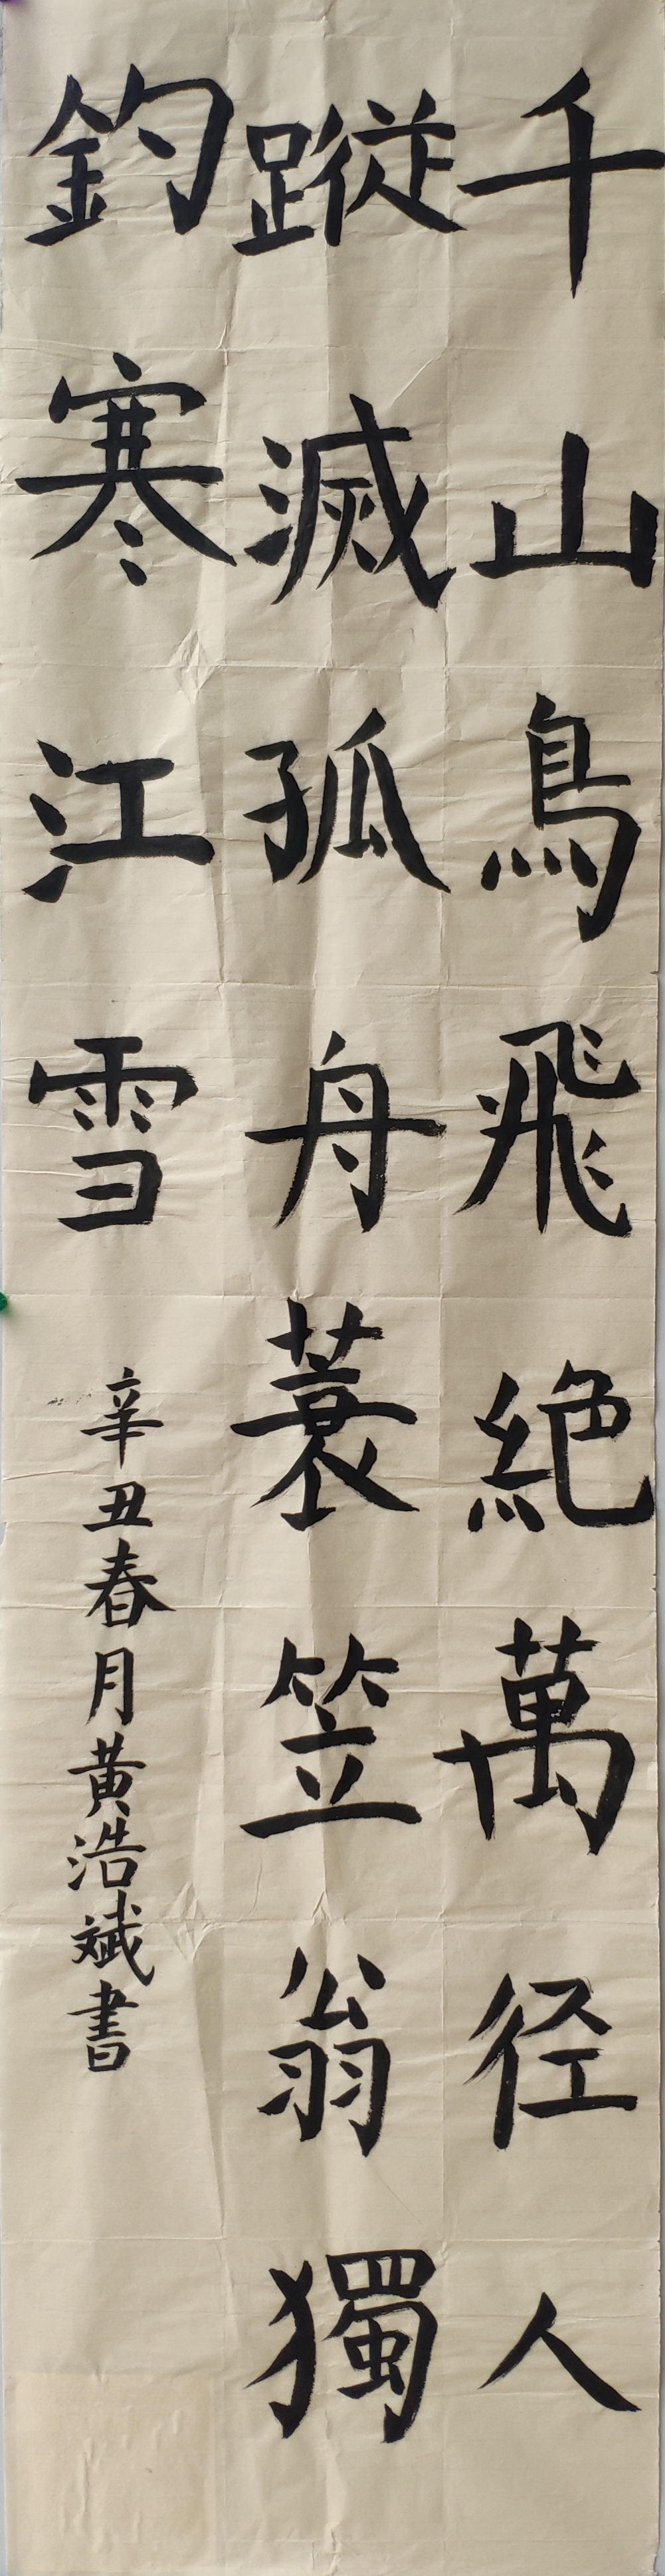 千山鳥飛絶萬径人
蹤滅孤舟蓑笠翁獨
釣寒江雪
辛丑春月黄浩斌書